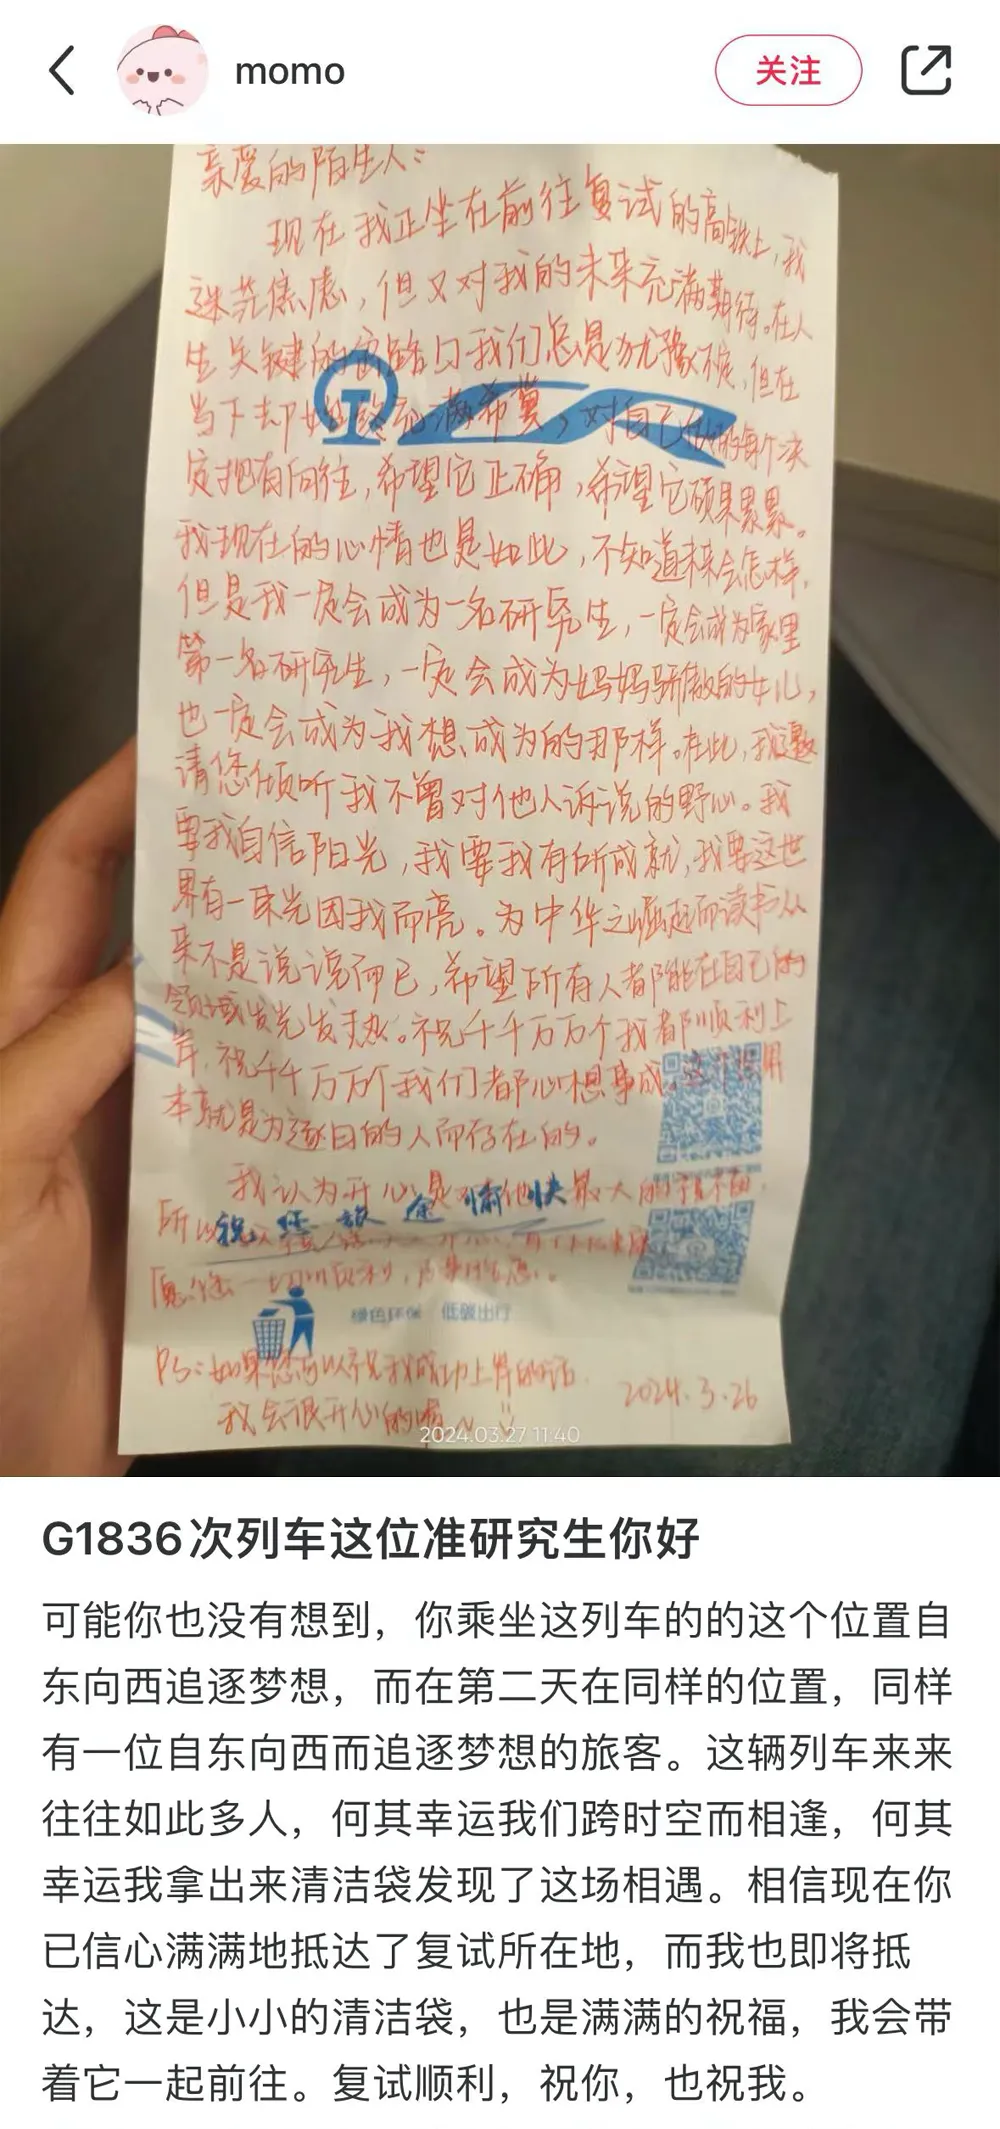 momo
关注
亲爱的陌生人：
现在我正坐在前往复试的高铁上，我
迷茫焦虑，但又对我的未来充满期待。在人
生关键的岔路口我们总是犹豫不决，但在
当下却始终充满希冀，对自己的每个决
定抱有向往，希望它正确，希望它硕果累累。
我现在的心情也是如此，不知道未来会怎样，
但是我一定会成为一名研究生，一定会成为家里
第一名研究生，一定会成为妈妈骄傲的女儿，
也一定会成为我想成为的那样。在此，我
请您倾听我不曾对他人诉说的野心。我
要我自信阳光，我要我有所成就，我要这世
界有一束光因我而亮。为中华之崛起而读书从
来不是说说而已，希望所有人都能在自己的
领域发光发热。祝千千万万个我都顺利上
岸，祝千千万万个我们都心想事成。这个
本就是为逐日的人而存在的。
我认为开心是最大的
所以
祝您旅途愉快
愿您一切顺利，
绿色环保 低碳出行
PS：如果您可以祝我成功上岸的话，
我会很开心的喔~
2024.3.26
2024.03.27 11:40
G1836次列车这位准研究生你好
可能你也没有想到，你乘坐这列车的的这个位置自
东向西追逐梦想，而在第二天在同样的位置，同样
有一位自东向西而追逐梦想的旅客。这辆列车来来
往往如此多人，何其幸运我们跨时空而相逢，何其
幸运我拿出来清洁袋发现了这场相遇。相信现在你
已信心满满地抵达了复试所在地，而我也即将抵
达，这是小小的清洁袋，也是满满的祝福，我会带
着它一起前往。复试顺利，祝你，也祝我。